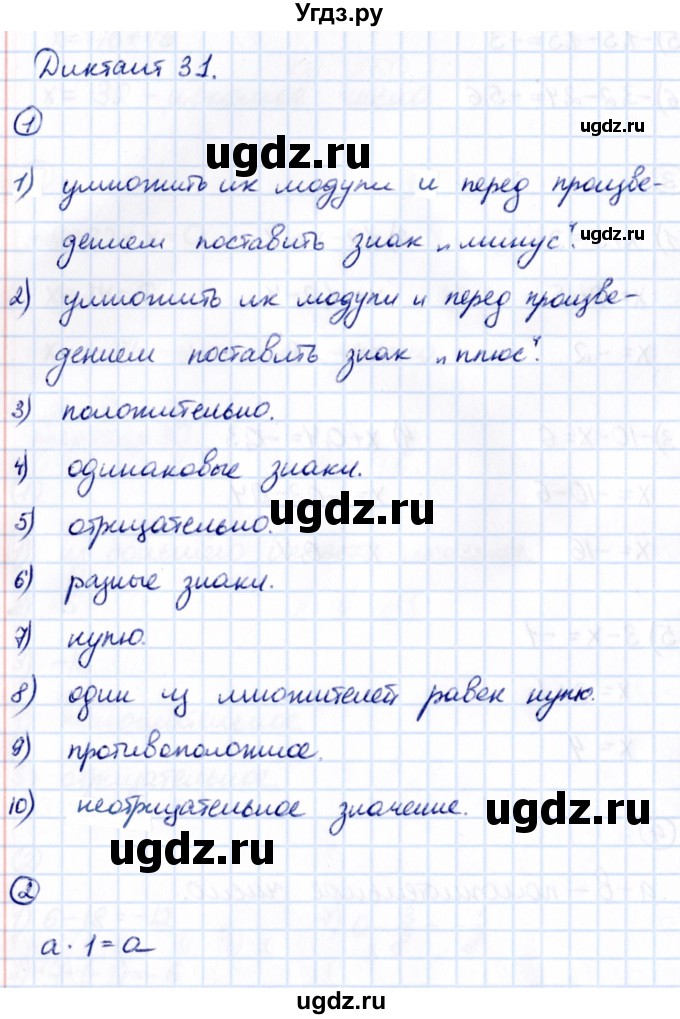 Угдз.ру
Диктант 31.
ugdz.ru
1
ugdz.ru
1) умножить их модули и перед произве-
дением поставить знак „минус“.
ugdz.ru
2) умножить их модули и перед произве-
дением поставить знак „плюс“.
3) положительно.
4) одинаковые знаки.
ugdz.ru
5) отрицательно.
6) разные знаки.
7) нулю.
8) один из множителей равен нулю.
9) противоположное.
10) неотрицательное значение.
ugdz.ru
ugdz.ru
2
a · 1 = a
ugdz.ru